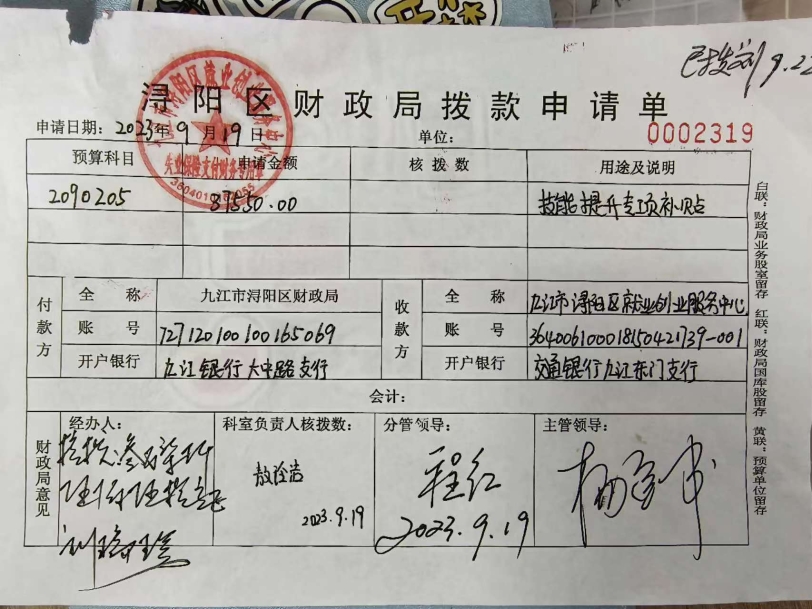 已拨刘 9.22
浔阳区财政局拨款申请单
申请日期：2023年9月19日
单位：
0002319
预算科目 申请金额 核拨数 用途及说明
2090205 87550.00 技能提升专项补贴
付款方
全称 九江市浔阳区财政局
账号 727120100100165069
开户银行 九江银行大中路支行
收款方
全称 九江市浔阳区就业创业服务中心
账号 364006100018150421739-001
开户银行 交通银行九江东门支行
会计：
财政局意见
经办人：
科室负责人核拨数：
2023.9.19
分管领导：
程红
2023.9.19
主管领导：
白联：财政局业务股室留存 红联：财政局国库股留存 黄联：预算单位留存
失业保险支付财务专用章